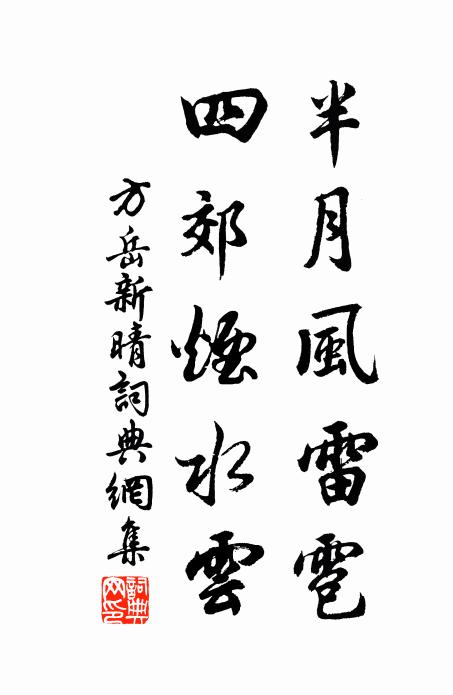 半月風雷雹
四郊煙水雲
方岳新晴詞典網集
詞典網印